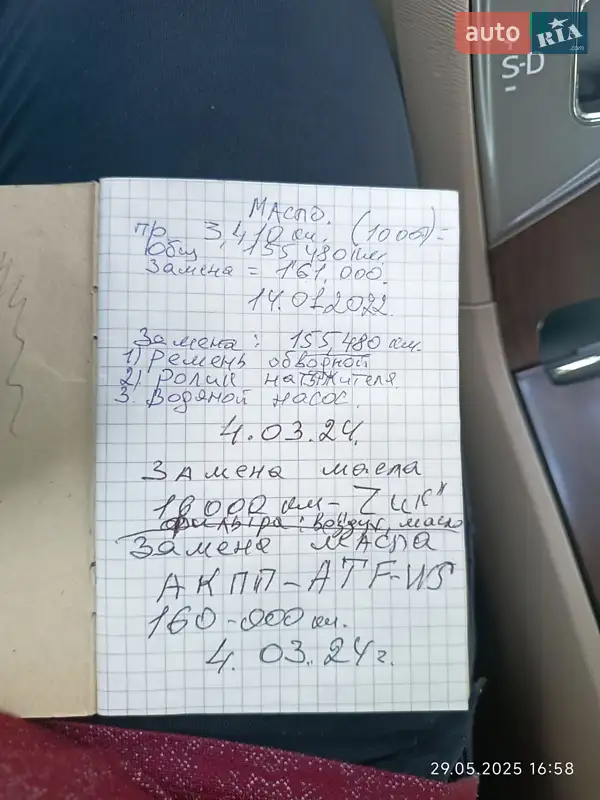 auto RIA .com
S-D
Масло.
пр 3,410 км. (1000) =
Общ 155,480 км.
Замена = 161,000.
14.01.2022.
Замена: 155,480 км.
1) Ремень обводной
2) Ролик натяжителя.
3. Водяной насос.
4.03.24.
Замена масла
км - "ZИК"
фильтра: воздух, масло
Замена масла
АКПП - ATF-WS
160-000 км.
4. 03. 24 г.
29.05.2025 16:58